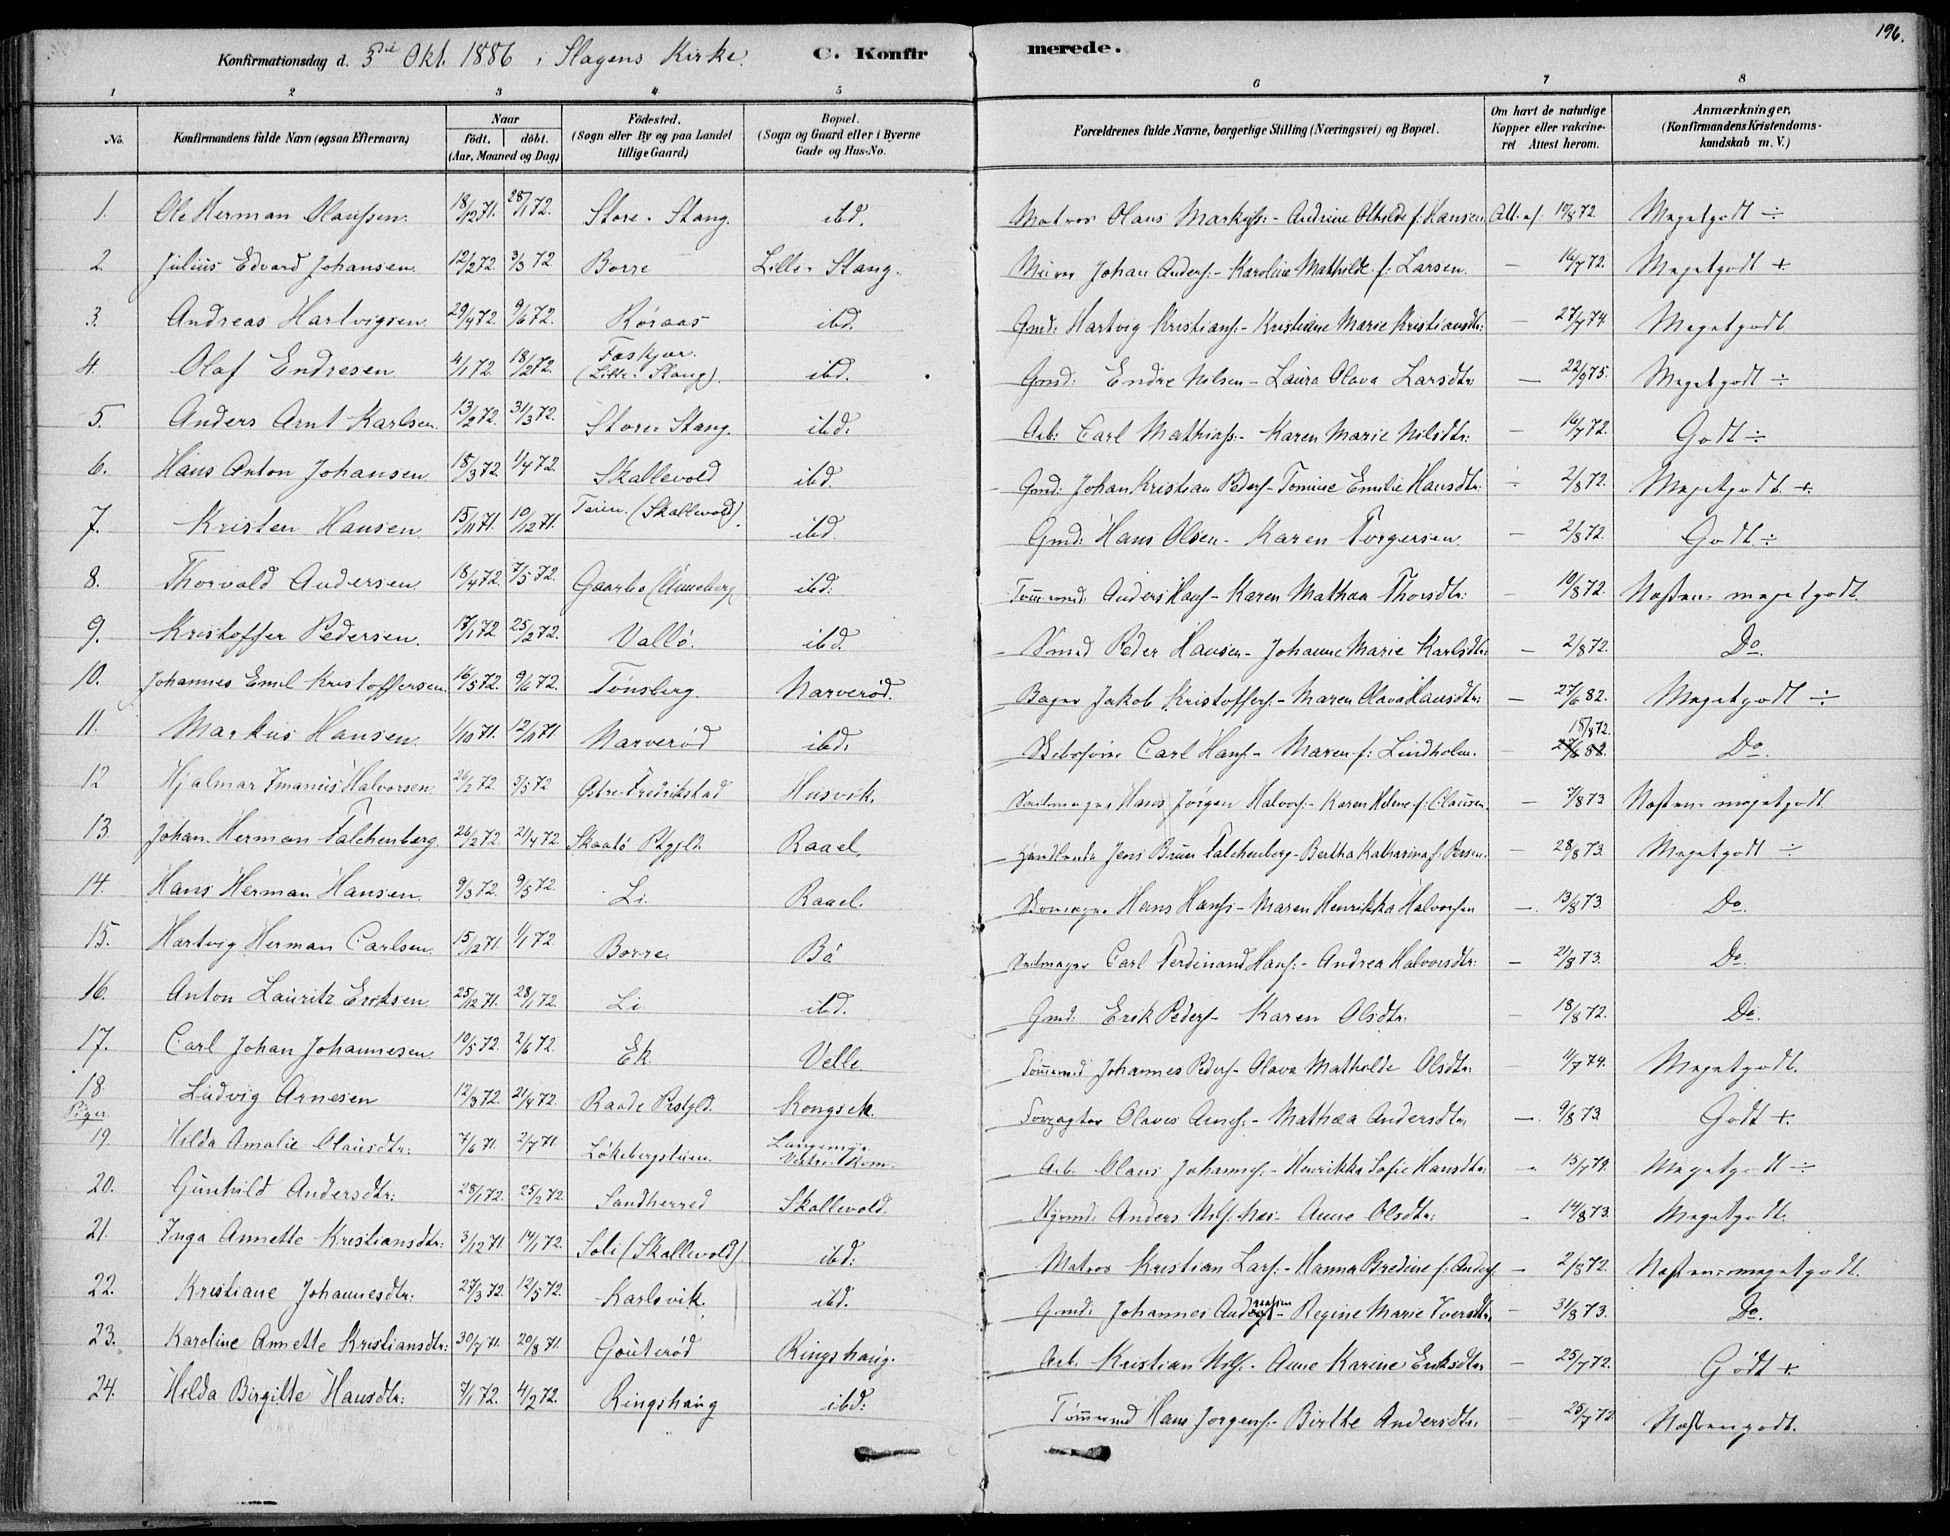 196.
Konfirmationsdag d. 3die Okt. 1886 i Slagens Kirke. C. Konfirmerede.
1 2 3 4 5 6 7 8
No. Konfirmandens fulde Navn (ogsaa Efternavn) Naar födt. döbt. (Aar, Maaned og Dag) Födested. (Sogn eller By og paa Landet tillige Gaard) Bopæl. (Sogn og Gaard eller i Byerne Gade og Hus-No. Forældrenes fulde Navne, borgerlige Stilling (Næringsvei) og Bopæl. Om havt de naturlige Kopper eller vakcineret Attest herom. Anmærkninger. (Konfirmandens Kristendomskundskab m. V.)
1. Ole Herman Olaussen. 18/12 71. 28/1 72. Store-Stang. ibd. Matros Olaus Markuss:- Andrine Othilde f: Hansen. Att. af: 17/8 72. Megetgodt ÷
2. Julius Edvard Johansen. 12/2 72. 3/3 72 Borre Lille-Stang. Murer Johan Anders:- Karoline Mathilde f: Larsen. — 16/7 72. Megetgodt +.
3. Andreas Hartvigsen. 29/4 72. 9/6 72. Röraas ibd. Gmd: Hartvig Kristians:- Kristiane Marie Kristiansdtr: — 27/7 74. Megetgodt
4. Olaf Endresen 4/1 72. 18/2 72. (Lille-Stang). ibd. Gmd: Endre Nilsen - Laura Olava Larsdtr — 22/9 75. Megetgodt ÷
5. Anders Arnt Karlsen. 13/2 72. 31/3 72. Store-Stang. ibd: Arb: Carl Mathiass:- Karen Marie Nilsdtr: — 16/7 72. Godt ÷
6. Hans Anton Johansen 18/3 72. 1/4 72. Skallevold ibd. Gmd: Johan Kristian Peders- Tomine Emilie Hansdtr: 2/8 72. Megetgodt +.
7. Kristen Hansen. 15/11 71. 10/12 71. Teien. (Skallevold). ibd. Gmd: Hans Olsen - Karen Torgersen. — 2/8 72. Godt ÷
8. Thorvald Andersen. 18/4 72. 7/5 72. Gaarbo (Unneberg) ibd: Tömmermd: Anders Hans- Karen Mathea Thorsdtr: — 10/8 72. Næsten megetgodt.
9. Kristoffer Pedersen. 17/1 72. 25/2 72. Vallö. ibd. Smed Peder Hansen - Johanne Marie Karlsdtr: — 2/8 72. Do.
10. Johannes Emil Kristoffersen. 16/5 72. 9/6 72. Tönsberg. Narveröd. Bager Jakob Kristoffers:- Maren Olava Hansdtr: — 27/6 82. Megetgodt ÷
11. Markus Hansen. 1/10 71. 12/11 71. Narveröd ibd: Skibsförer Carl Hans- Maren f: Lindholm. — 18/7 72. Do.
12 Hjalmar Imanius Halvorsen. 26/2 72 5/5 72 Østre-Fredrikstad Husvik. Seilmager Hans Jörgen Halvors:- Karen Helene f: Clausen. — 7/8 73 Næsten megetgodt
13. Johan Herman Falchenberg. 26/2 72. 21/4 72. Skaatö Ptgjld. Raael. Handlende Jens Bruun Falchenberg - Bertha Katharina f: — 28/8 73. Megetgodt ÷
14. Hans Herman Hansen. 9/3 72. 9/5 72. Li. Raael. Skomager Hans Hans:- Maren Henrikka Halvorsen — 13/8 73. Do.
15. Hartvig Herman Carlsen. 15/12 71. 1/1 72 Borre. Bö Seilmager Carl Ferdinand Hans:- Andrea Halvorsdtr: — 21/8 73. Do.
16. Anton Lauritz Eriksen 25/12 71. 28/1 72. Li ibd. Gmd: Erik Peders- Karen Olsdtr: — 18/8 72. Do.
17. Carl Johan Johannesen. 19/5 72. 2/6 72. Ek Velle Tömmermd Johannes Peders- Olava Mathilde Olsdtr: — 11/7 74. Megetgodt.
18 Ludvig Arnesen 12/3 72. 21/4 72. Raade Prstgld. Kongsek. Forpagter Olaves Arnes:- Mathea Andersdtr — 9/8 73. Godt +.
Piger.
19. Hilda Amalie Olausdtr: 7/6 71. 2/7 71. Lökebergstuen. Arb. Olaus Johanns:- Henrikka Sofie Hansdtr 15/7 72. Megetgodt ÷
20. Gunhild Andersdtr: 28/1 72. 25/2 72. Sandherred Skallevold. Anders Nils: Næs- Anne Olsdtr: 14/8 73. Megetgodt.
21. Inga Annette Kristiansdtr: 3/12 71. 14/1 72. Soli (Skallevold). ibd: Matros Kristian Lars:- Hanna Bredine f: Anders: — 2/8 72. Næsten megetgodt.
22. Kristiane Johannesdtr: 27/3 72. 12/5 72. Karlsvik. ibd. Gmd: Johannes Andreassen - Regine Marie Iversdtr. — 31/8 73. Do.
23. Karoline Annette Kristiansdtr: 30/7 71. 20/8 71. Gouteröd Ringshaug. Arb. Kristian Nils:- Anne Karine Eriksdtr — 25/7 72. Godt +.
24. Hilda Birgitte Hansdtr: 7/1 72. 4/2 72. Ringshaug ibd: Tömmermd Hans Jorgens:- Birthe Andersdtr: — 25/7 72. Næstengodt.